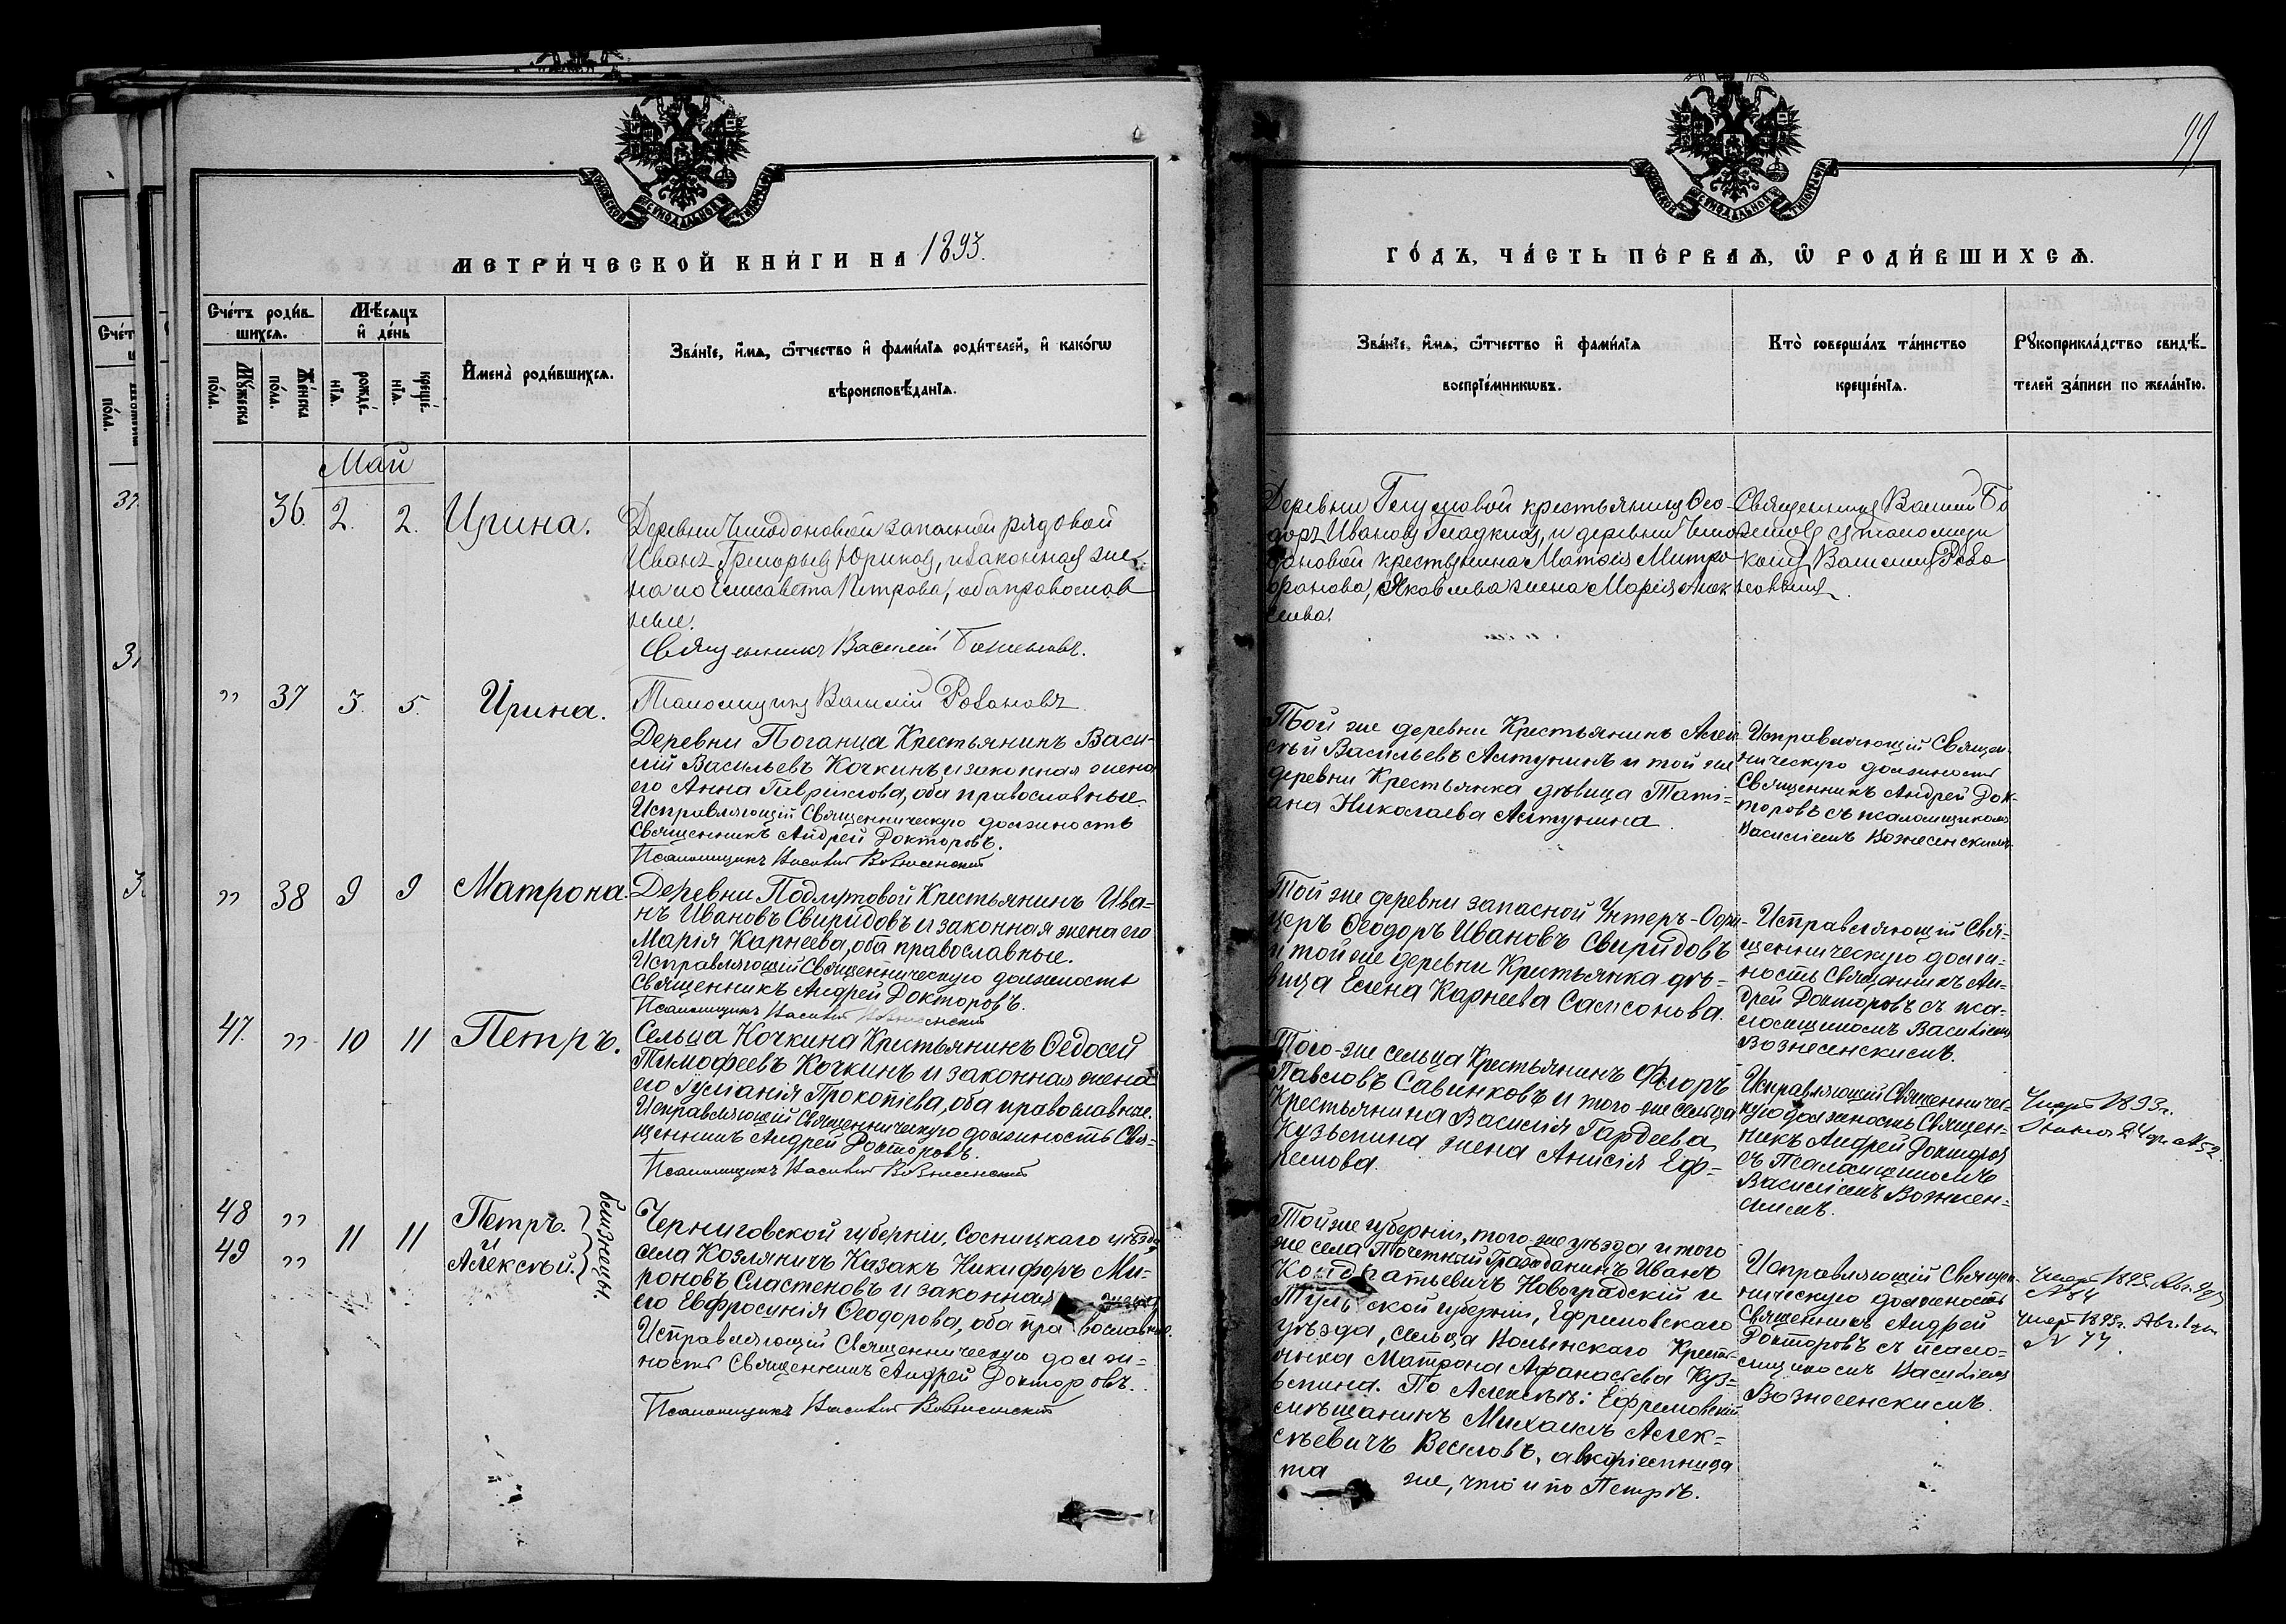 99
МЕТРИ́ЧЕСКОЙ КНИ́ГИ НА 1893.
Сче́тъ роди́в-
шихсѧ.
Мѣ́сяцъ
и҆ де́нь
Мꙋ́жеска
по́ла.
Же́нска
по́ла.
рожде́-
нїѧ.
креще́-
нїѧ.
И҆мена̀ роди́вшихсѧ.
Зва́нїе, и҆́мѧ, ѻ҆́тчество и҆ фами́лїѧ роди́телей, и҆ како́гѡ
вѣроисповѣ́данїѧ.
Май
36. 2. 2. Ирина.
Деревни запасный рядовой
Иванъ Григорьевъ Юриковъ, и законная же-
на его Елисавета Петрова, оба православ
ные.
Священникъ Василій Боженовъ.
Псаломщикъ Василій
" 37 3. 5. Ирина.
Деревни Поганца Крестьянинъ Васи-
лій Васильевъ Кочкинъ и законная жена
его Анна Гаврилова, оба православные.
Исправляющій Священническую должность
Священникъ Андрей Докторовъ.
Псаломщикъ Василій Вознесенскій
" 38 9 9 Матрона.
Деревни Подлутовой Крестьянинъ Ива-
нъ Ивановъ Свиридовъ и законная жена его
Марія Карнеева, оба православные.
Исправляющій Священническую должность
Священникъ Андрей Докторовъ.
Псаломщикъ Василій Вознесенскій
47. " 10 11 Петръ.
Сельца Кочкина Крестьянинъ Ѳедосей
Тимофеевъ Кочкинъ и законная жена
его Іуліанія Прокопіева, оба православные.
Исправляющій Священническую должность Свя-
щенникъ Андрей Докторовъ.
Псаломщикъ Василій Вознесенскій
48 "
49 "
11 11
Петръ.
и
Алексѣй.
близнецы.
Черниговской губерніи, Сосницкаго уѣзда,
села Козляничъ Казакъ Никифоръ Ми-
роновъ Сластеновъ и законная жена
его Евфросинія Ѳеодорова, оба православные.
Исправляющій Священническую долж-
ность Священникъ Андрей Докторовъ.
Псаломщикъ Василій Вознесенскій
ГО́ДЪ, ЧА́СТЬ ПЕ́РВАѦ, Ѡ҆ РОДИ́ВШИХСѦ.
Зва́нїе, и҆́мѧ, ѻ҆́тчество и҆ фами́лїѧ
воспрїе́мникѡвъ.
Кто̀ соверша́лъ та́инство
креще́нїѧ.
Рꙋкоприкла́дство свидѣ́-
телей за́писи по жела́нїю.
Деревни крестьянинъ Ѳео-
доръ Ивановъ Гладкихъ, и деревни
крестьянина Матѳія Митро-
фанова, Яковлева жена Марія Алек
сеева.
Священникъ Василій Бо
женовъ съ псаломщи
комъ Василіемъ
Той же деревни Крестьянинъ Алек-
сѣй Васильевъ Алтунинъ и той же
деревни Крестьянка дѣвица Тати-
ана Николаева Алтунина.
Исправляющій Священ-
ническую должность
Священникъ Андрей Док-
торовъ съ псаломщикомъ
Василіемъ Вознесенскимъ.
Той же деревни запасной Унтеръ-Офи-
церъ Ѳеодоръ Ивановъ Свиридовъ
и той же деревни Крестьянка дѣ-
вица Елена Карнеева Самсонова.
Исправляющій Свя-
щенническую долж-
ность Священникъ Ан-
дрей Докторовъ съ пса-
ломщикомъ Василіемъ
Вознесенскимъ.
Того-же сельца Крестьянинъ Флоръ
Павловъ Савинковъ и того-же сельца
Крестьянина Василія Гордеева
Кузьмина жена Анисія Еф-
ремова.
Исправляющій Священничес-
кую должность Священ-
никъ Андрей Докторовъ
съ Псаломщикомъ
Василіемъ Вознесен-
скимъ.
Умеръ 1893г.
24 дн. №52.
Той же губерніи, того-же уѣзда и того
же села Почетный Гражданинъ Иванъ
Кондратьевичъ Новоградскій и
Тульской губерніи, Ефремовскаго
уѣзда, сельца Крестья-
нка Матрона Афанасьева Куз-
ьмина. По Алексѣѣ: Ефремовскій
мѣщанинъ Михаилъ Алек-
сѣевичъ Веселовъ, а воспріемница
та же, что и по Петрѣ.
Исправляющій Священ-
ническую должность
Священникъ Андрей
Докторовъ съ псало-
мщикомъ Василіемъ
Вознесенскимъ.
Умеръ 1893. Авг.
Умеръ 1893г. Авг.